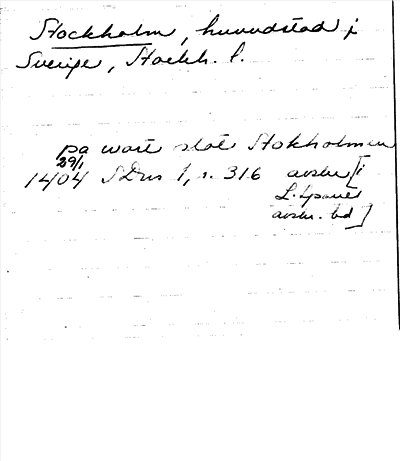 Stockholm, huvudstad i
Sverige, Stockh. l.
pa wort slot Stokholmen
29/1
1404 SDns 1, s. 316 avskr [i
avskr. bd]